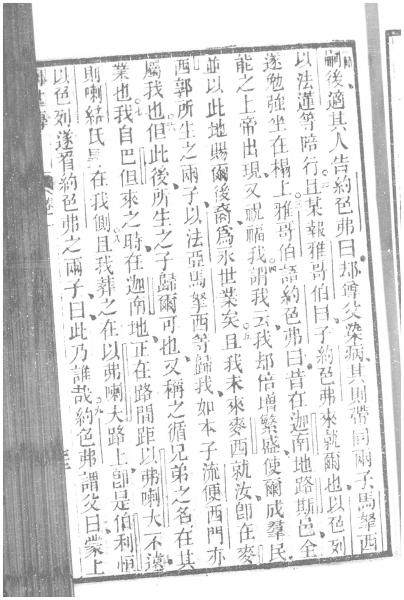 嗣後適其人告約色弗曰却尊父染病其則帶同兩子馬拏西
以法蓮等陪行且某報雅哥伯曰子約色弗來就爾也以色列
遂勉強坐在榻上雅哥伯語約色弗曰昔在迦南地路斯邑全
能之上帝出現又祝福我謂我云我却倍增繁盛使爾成羣民
並以此地賜爾後裔為永世業矣且我未來麥西就汝卽在麥
西郭所生之兩子以法亞馬拏西等歸我如本子流便西門亦
屬我也但此後所生之子歸爾可也又稱之循兄弟之名在其
業也我自巴但來之時在迦南地正在路間距以弗喇大不遠
則喇結氏在我側且我葬之在以弗喇大路上卽是伯利恒
以色列遂看約色弗之兩子曰此乃誰哉約色弗謂父曰蒙上